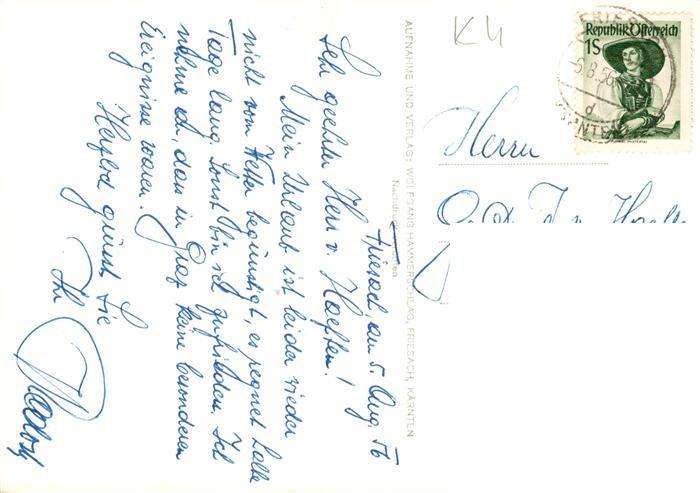 Friesach, am 5. Aug. 56
Sehr geehrter Herr v. Haeften!
Mein Urlaub ist leider wieder
nicht vom Wetter begünstigt, es regnet halbe
Tage lang. Sonst bin ich zufrieden. Ich
nehme an, dass in Graz keine besonderen
Ereignisse waren.
Herzlich grüsst Sie
Ihr
AUFNAHME UND VERLAG: WOLFGANG HAMMERSCHLAG, FRIESACH, KÄRNTEN
K4
Republik Österreich
1S
5.8.56
d
Herrn